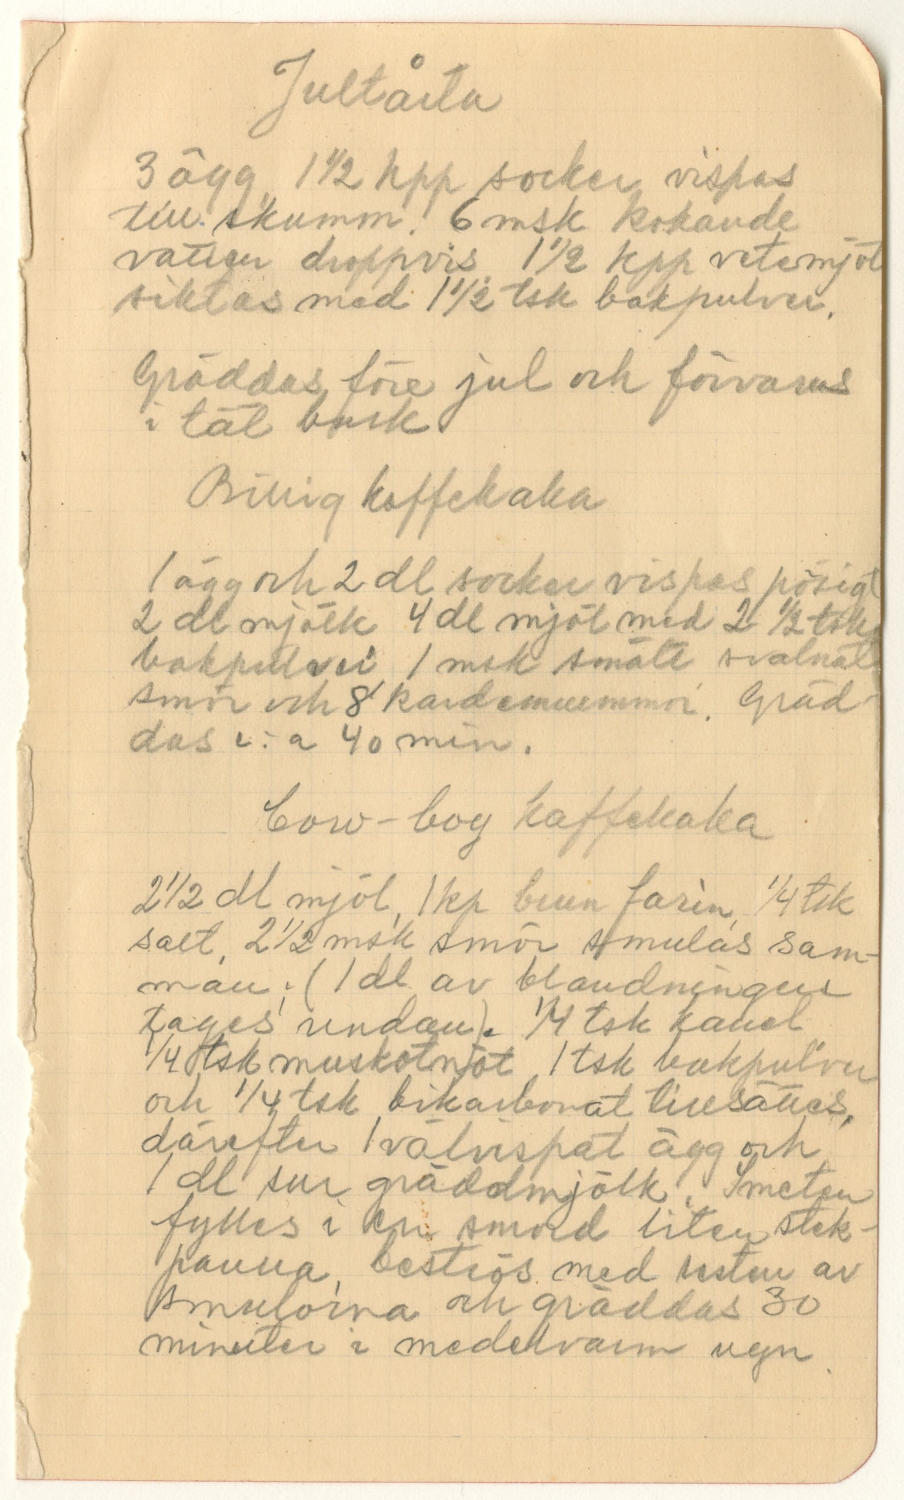 Jultårta
3 ägg 1 1/2 kpp socker vispas
till skumm. 6 msk kokande
vatten droppvis 1 1/2 kpp vetemjöl
siktas med 1 1/2 tsk bakpulver.
Gräddas före jul och förvaras
i tät burk
Billig kaffekaka
1 ägg och 2 dl socker vispas pösigt
2 dl mjölk 4 dl mjöl med 2 1/2 tsk
bakpulver 1 msk smält svalnat
smör och 8 kardemummor. Gräd-
das c:a 40 min.
Cow-boy kaffekaka
2 1/2 dl mjöl, 1 kp brun farin, 1/4 tsk
salt, 2 1/2 msk smör smulas sam-
man; (1 dl av blandningen
tages undan). 1/4 tsk kanel
1/4 tsk muskotnöt 1 tsk bakpulver
och 1/4 tsk bikarbonat tillsättes,
därefter 1 välvispat ägg och
1 dl sur gräddmjölk. Smeten
fylles i en smord liten stek-
panna, beströs med resten av
smulorna och gräddas 30
minuter i medelvarm ugn.